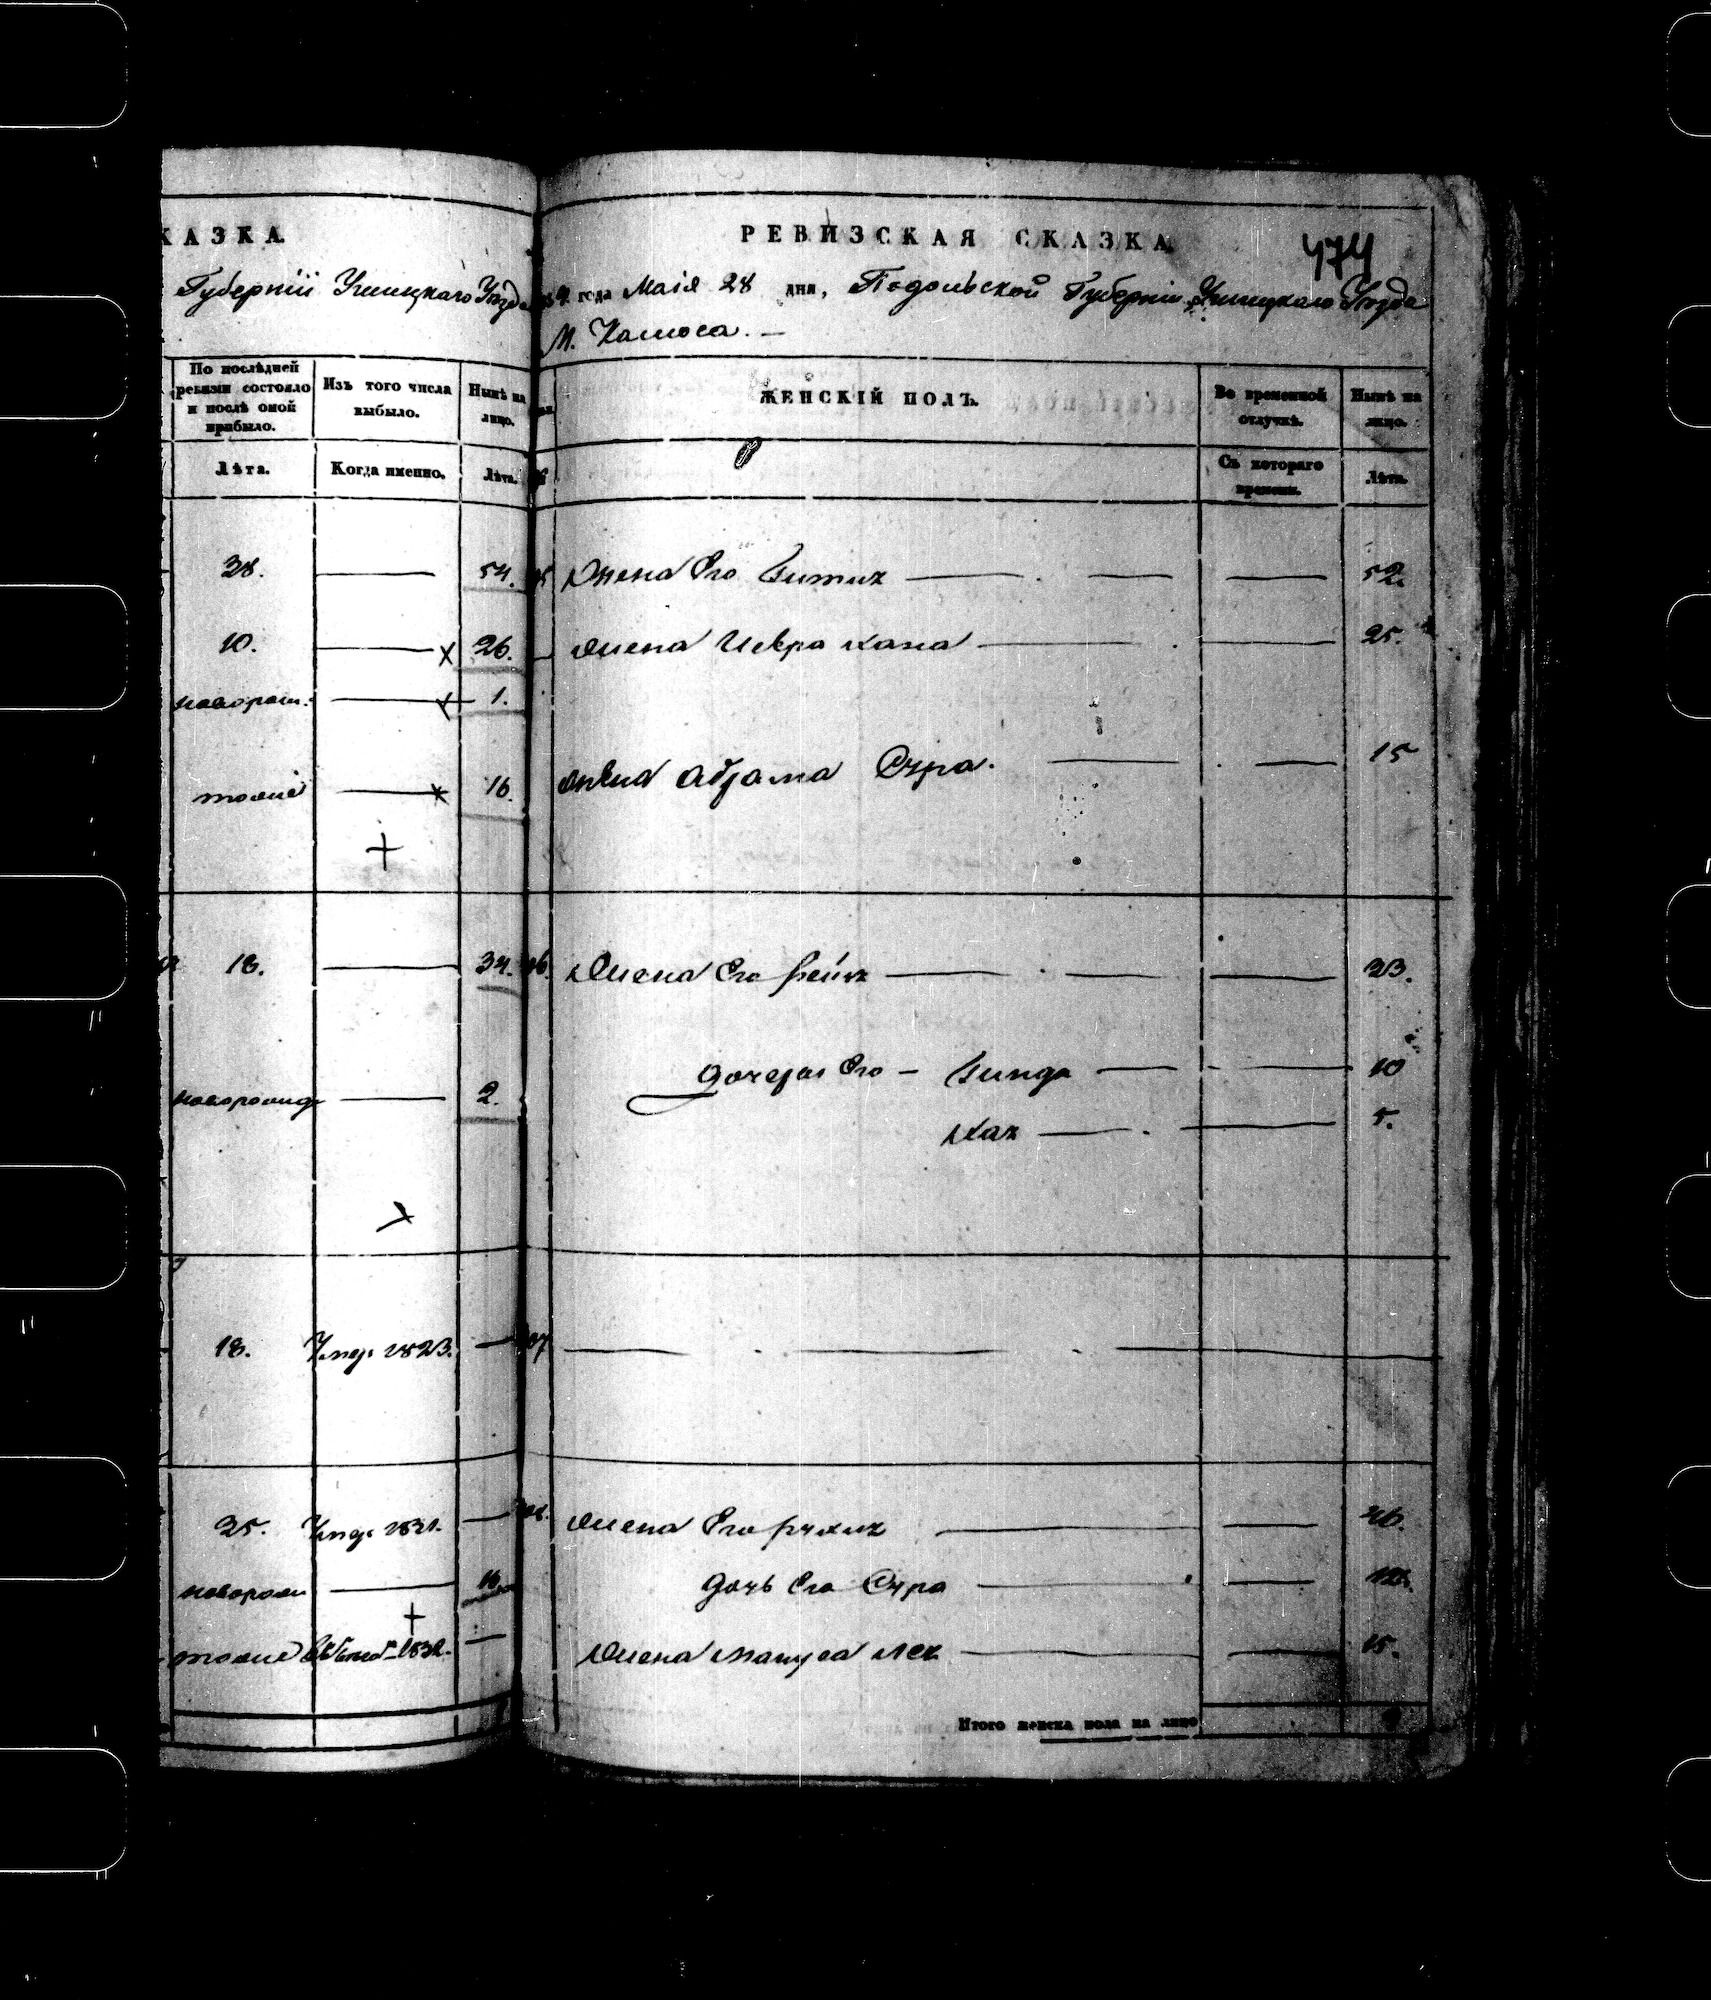 КАЗКА.
Губерніи Ушицкаго Уѣзда
По послѣдней
ревизіи состояло
и послѣ оной
прибыло.
Изъ того числа
выбыло.
Нынѣ на
лицо.
Лѣта.
Когда именно.
Лѣта.
38. 54.
10. 26.
новорож. 1.
тоже 16.
18. 34.
новорожд 2.
18. Умер. 1823.
35. Умер. 1831.
новорож 16
тоже 1832.
474
РЕВИЗСКАЯ СКАЗКА
года Маія 28 дня, Подольской Губерніи Ушицкаго Уѣзда
М. Калюса.
ЖЕНСКІЙ ПОЛЪ.
Во временной
отлучкѣ.
Нынѣ на
лицо.
Съ котораго
времени.
Лѣта.
Жена Его 52.
Жена 25.
Жена Абрама Сура. 15
Жена Его Рейзя 23.
дочери Его – 10
Хая 5.
Жена Его 46.
дочь Его Сура
Жена Лея 15.
Итого женска пола на лицо